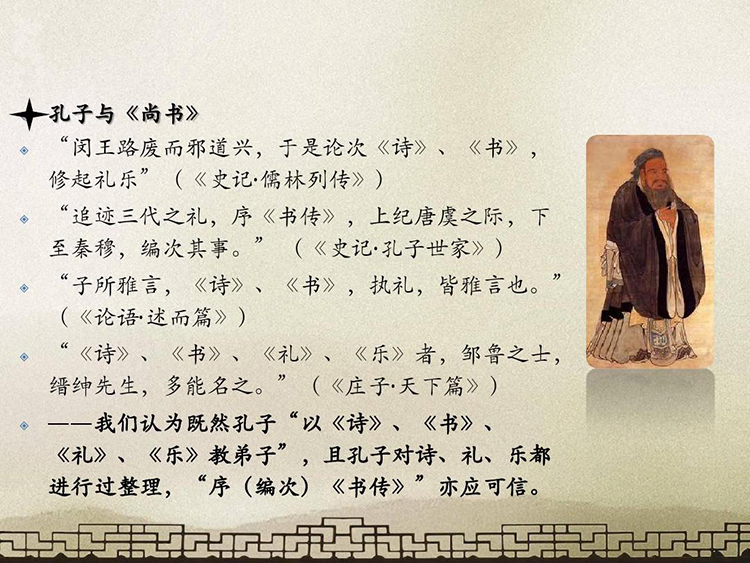 孔子与《尚书》
“闵王路废而邪道兴，于是论次《诗》、《书》，
修起礼乐”（《史记·儒林列传》）
“追迹三代之礼，序《书传》，上纪唐虞之际，下
至秦穆，编次其事。”（《史记·孔子世家》）
“子所雅言，《诗》、《书》，执礼，皆雅言也。”
（《论语·述而篇》）
“《诗》、《书》、《礼》、《乐》者，邹鲁之士，
缙绅先生，多能名之。”（《庄子·天下篇》）
——我们认为既然孔子“以《诗》、《书》、
《礼》、《乐》教弟子”，且孔子对诗、礼、乐都
进行过整理，“序（编次）《书传》”亦应可信。